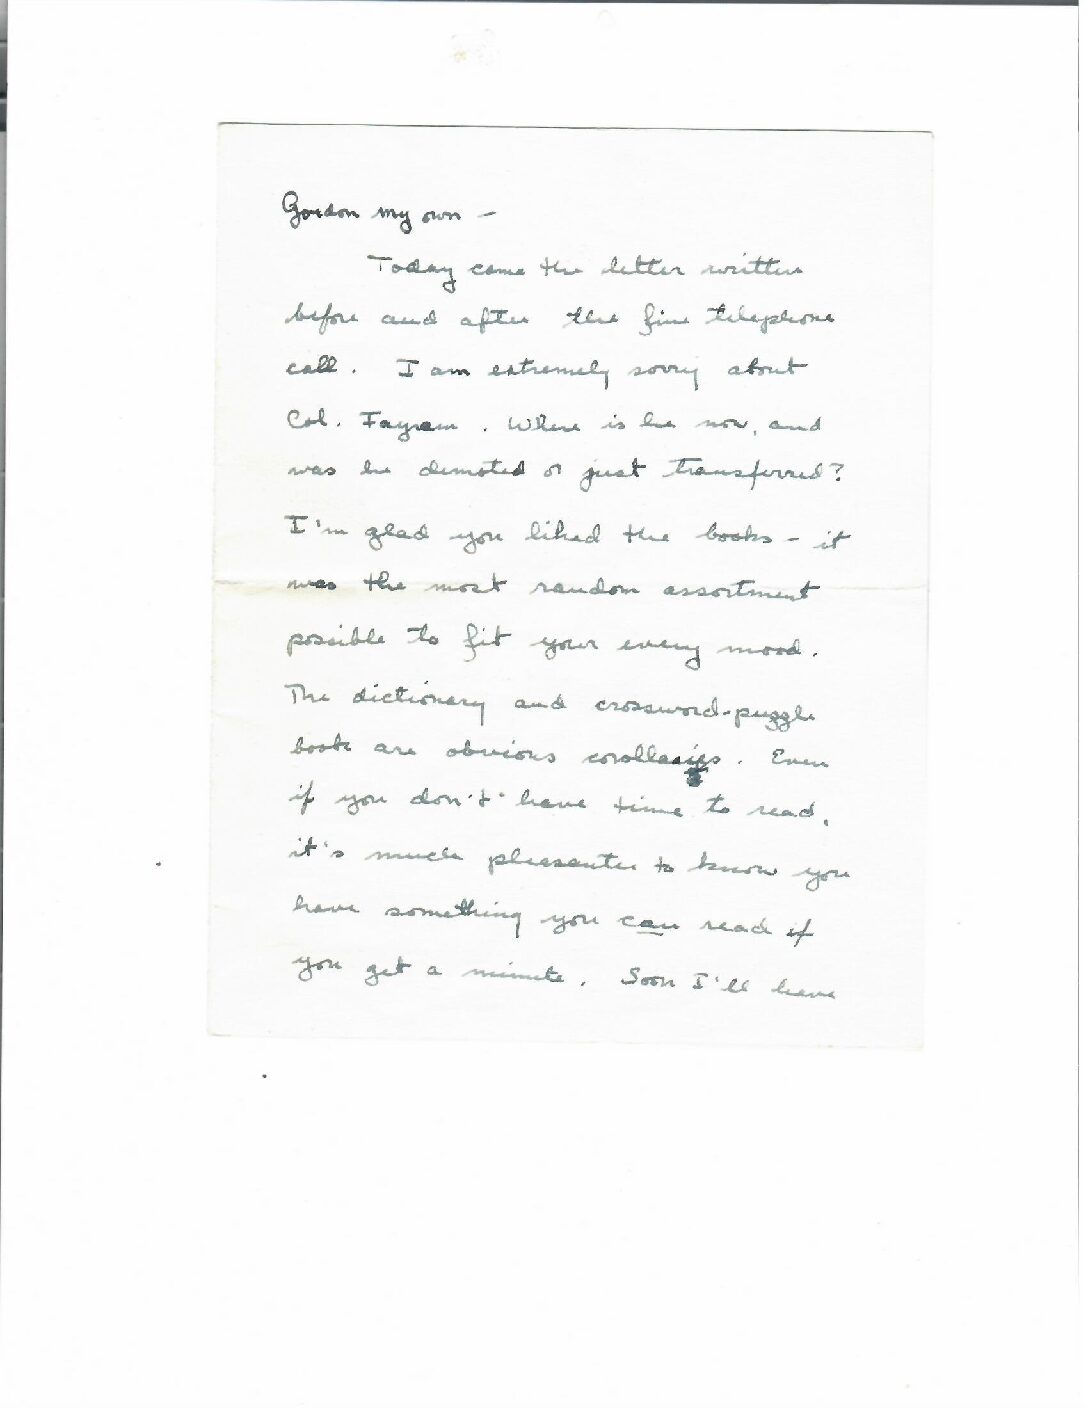 Gordon my own –
Today came the letter written
before and after the fine telephone
call. I am extremely sorry about
Col. Fayram. Where is he now, and
was he demoted or just transferred?
I'm glad you liked the books – it
was the most random assortment
possible to fit your every mood.
The dictionary and crossword-puzzle
book are obvious corollaries. Even
if you don't have time to read,
it's much pleasanter to know you
have something you can read if
you get a minute. Soon I'll have